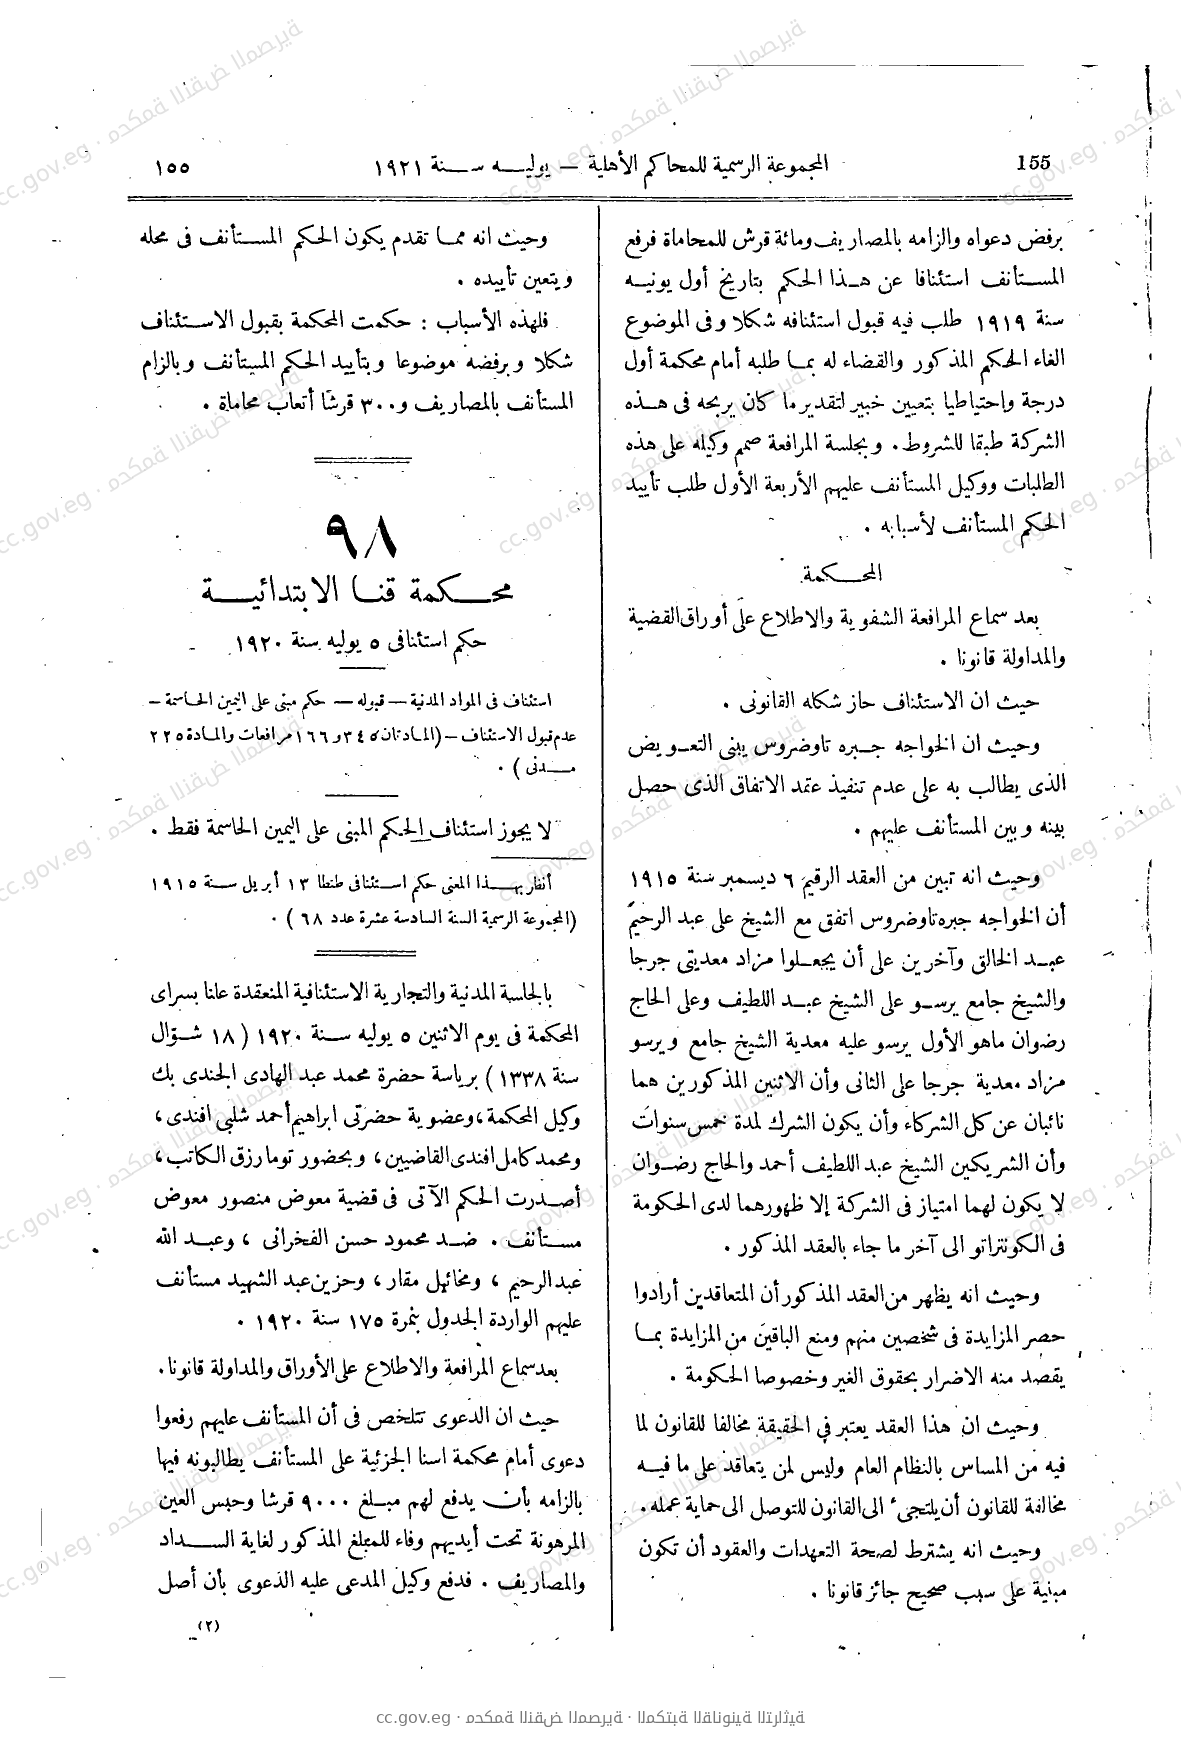 155
المجموعة الرسمية للمحاكم الأهلية — يوليه سنة ١٩٢١
١٥٥
برفض دعواه والزامه بالمصاريف ومائة قرش للمحاماة فرفع
المستأنف استئنافا عن هذا الحكم بتاريخ أول يونيه
سنة ١٩١٩ طلب فيه قبول استئنافه شكلا وفى الموضوع
الغاء الحكم المذكور والقضاء له بما طلبه أمام محكمة أول
درجة واحتياطيا بتعيين خبير لتقدير ما كان يربحه فى هذه
الشركة طبقا للشروط . وبجلسة المرافعة صمم وكيله على هذه
الطلبات ووكيل المستأنف عليهم الأربعة الأول طلب تأييد
الحكم المستأنف لأسبابه .
المحكمة
بعد سماع المرافعة الشفوية والاطلاع على أوراق القضية
والمداولة قانونا .
حيث ان الاستئناف حاز شكله القانونى .
وحيث ان الخواجه جبره تاوضروس يبنى التعويض
الذى يطالب به على عدم تنفيذ عقد الاتفاق الذى حصل
بينه وبين المستأنف عليهم .
وحيث انه تبين من العقد الرقيم ٦ ديسمبر سنة ١٩١٥
أن الخواجه جبره تاوضروس اتفق مع الشيخ على عبد الرحيم
عبد الخالق وآخرين على أن يجعلوا مزاد معديتى جرجا
والشيخ جامع يرسو على الشيخ عبد اللطيف وعلى الحاج
رضوان ماهو الأول يرسو عليه معدية الشيخ جامع ويرسو
مزاد معدية جرجا على الثانى وأن الاثنين المذكورين هما
نائبان عن كل الشركاء وأن يكون الشرك لمدة خمس سنوات
وأن الشريكين الشيخ عبد اللطيف أحمد والحاج رضوان
لا يكون لهما امتياز فى الشركة إلا ظهورهما لدى الحكومة
فى الكونتراتو الى آخر ما جاء بالعقد المذكور .
وحيث انه يظهر من العقد المذكور أن المتعاقدين أرادوا
حصر المزايدة فى شخصين منهم ومنع الباقين من المزايدة بما
يقصد منه الاضرار بحقوق الغير وخصوصا الحكومة .
وحيث ان هذا العقد يعتبر فى الحقيقة مخالفا للقانون لما
فيه من المساس بالنظام العام وليس لمن يتعاقد على ما فيه
مخالفة للقانون أن يلتجىء الى القانون للتوصل الى حماية عمله .
وحيث انه يشترط لصحة التعهدات والعقود أن تكون
مبنية على سبب صحيح جائز قانونا .
وحيث انه مما تقدم يكون الحكم المستأنف فى محله
ويتعين تأييده .
فلهذه الأسباب : حكمت المحكمة بقبول الاستئناف
شكلا وبرفضه موضوعا وبتأييد الحكم المستأنف وبالزام
المستأنف بالمصاريف و ٣٠٠ قرشا أتعاب محاماة .
٩٨
محكمة قنا الابتدائية
حكم استئنافى ٥ يوليه سنة ١٩٢٠
استئناف فى المواد المدنية — قبوله — حكم مبنى على اليمين الحاسمة —
عدم قبول الاستئناف — (المادتان ٣٤٥ و ١٦٦ مرافعات والمادة ٢٢٥
مدنى) .
لا يجوز استئناف الحكم المبنى على اليمين الحاسمة فقط .
أنظر بهذا المعنى حكم استئنافى طنطا ١٣ أبريل سنة ١٩١٥
(المجموعة الرسمية السنة السادسة عشرة عدد ٦٨) .
بالجلسة المدنية والتجارية الاستئنافية المنعقدة علنا بسراى
المحكمة فى يوم الاثنين ٥ يوليه سنة ١٩٢٠ (١٨ شوّال
سنة ١٣٣٨) برياسة حضرة محمد عبد الهادى الجندى بك
وكيل المحكمة، وعضوية حضرتى ابراهيم أحمد شلبى افندى،
ومحمد كامل افندى القاضيين، وبحضور توما رزق الكاتب،
أصدرت الحكم الآتى فى قضية معوض منصور معوض
مستأنف . ضد محمود حسن الفخرانى ، وعبد الله
عبد الرحيم ، ومخائيل مقار ، وحزين عبد الشهيد مستأنف
عليهم الواردة الجدول بنمرة ١٧٥ سنة ١٩٢٠ .
بعد سماع المرافعة والاطلاع على الأوراق والمداولة قانونا .
حيث ان الدعوى تتلخص فى أن المستأنف عليهم رفعوا
دعوى أمام محكمة اسنا الجزئية على المستأنف يطالبونه فيها
بالزامه بأن يدفع لهم مبلغ ٩٠٠٠ قرشا وحبس العين
المرهونة تحت أيديهم وفاء للمبلغ المذكور لغاية السداد
والمصاريف . فدفع وكيل المدعى عليه الدعوى بأن أصل
(٢)
cc.gov.eg · محكمة النقض المصرية · المكتبة القانونية التراثية